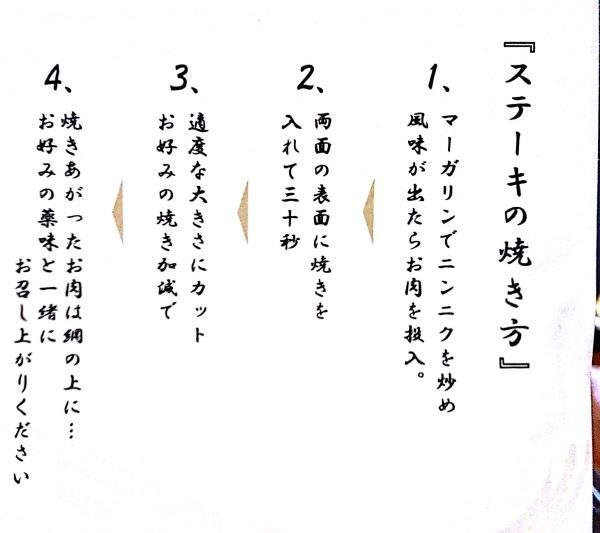 『ステーキの焼き方』
1、
マーガリンでニンニクを炒め
風味が出たらお肉を投入。
2、
両面の表面に焼きを
入れて三十秒
3、
適度な大きさにカット
お好みの焼き加減で
4、
焼きあがったお肉は網の上に…
お好みの薬味と一緒に
お召し上がりください